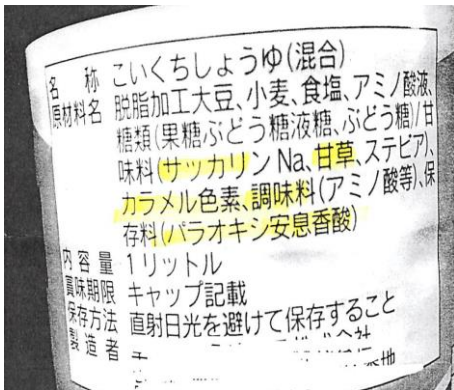 名称 こいくちしょうゆ(混合)
原材料名 脱脂加工大豆、小麦、食塩、アミノ酸液、
糖類(果糖ぶどう糖液糖、ぶどう糖)/甘
味料(サッカリンNa、甘草、ステビア)、
カラメル色素、調味料(アミノ酸等)、保
存料(パラオキシ安息香酸)
内容量 1リットル
賞味期限 キャップ記載
保存方法 直射日光を避けて保存すること
製造者